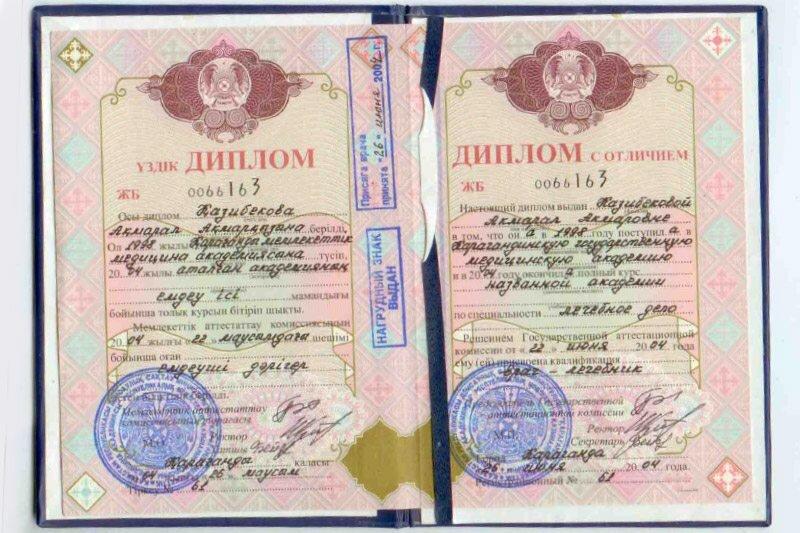 ҮЗДІК ДИПЛОМ
ЖБ 0066163
Осы диплом Казибекова
Акмарал берілді.
Ол 1998 жылы Караганда мемлекеттік
медицина академиясына түсіп,
20 04 жылы аталған академияның
емдеу ісі мамандығы
бойынша толық курсын бітіріп шықты.
Мемлекеттік аттестаттау комиссиясының
20 04 жылғы «22» маусымдағы шешімі
бойынша оған
емдеуші дәрігер
Мемлекеттік аттестаттау
комиссиясының
Ректор
М.О.
Караганда каласы
04 26 маусым
Тіркеу № 62
Присяга врача
принята "26" июня 2004 г.
НАГРУДНЫЙ ЗНАК
ВЫДАН
ДИПЛОМ С ОТЛИЧИЕМ
ЖБ 0066163
Настоящий диплом выдан Казибековой
Акмарал
в том, что он а в 1998 году поступил а в
Карагандинскую государственную
медицинскую академию
и в 20 04 году окончил а полный курс
названной академии
по специальности
лечебное дело
Решением Государственной аттестационной
комиссии от «22» июня 20 04 года
ему (ей) присвоена квалификация
врач лечебник
Председатель Государственной
аттестационной комиссии
Ректор
М.П. Секретарь
Караганда
26 июня 20 04 года.
Регистрационный № 62